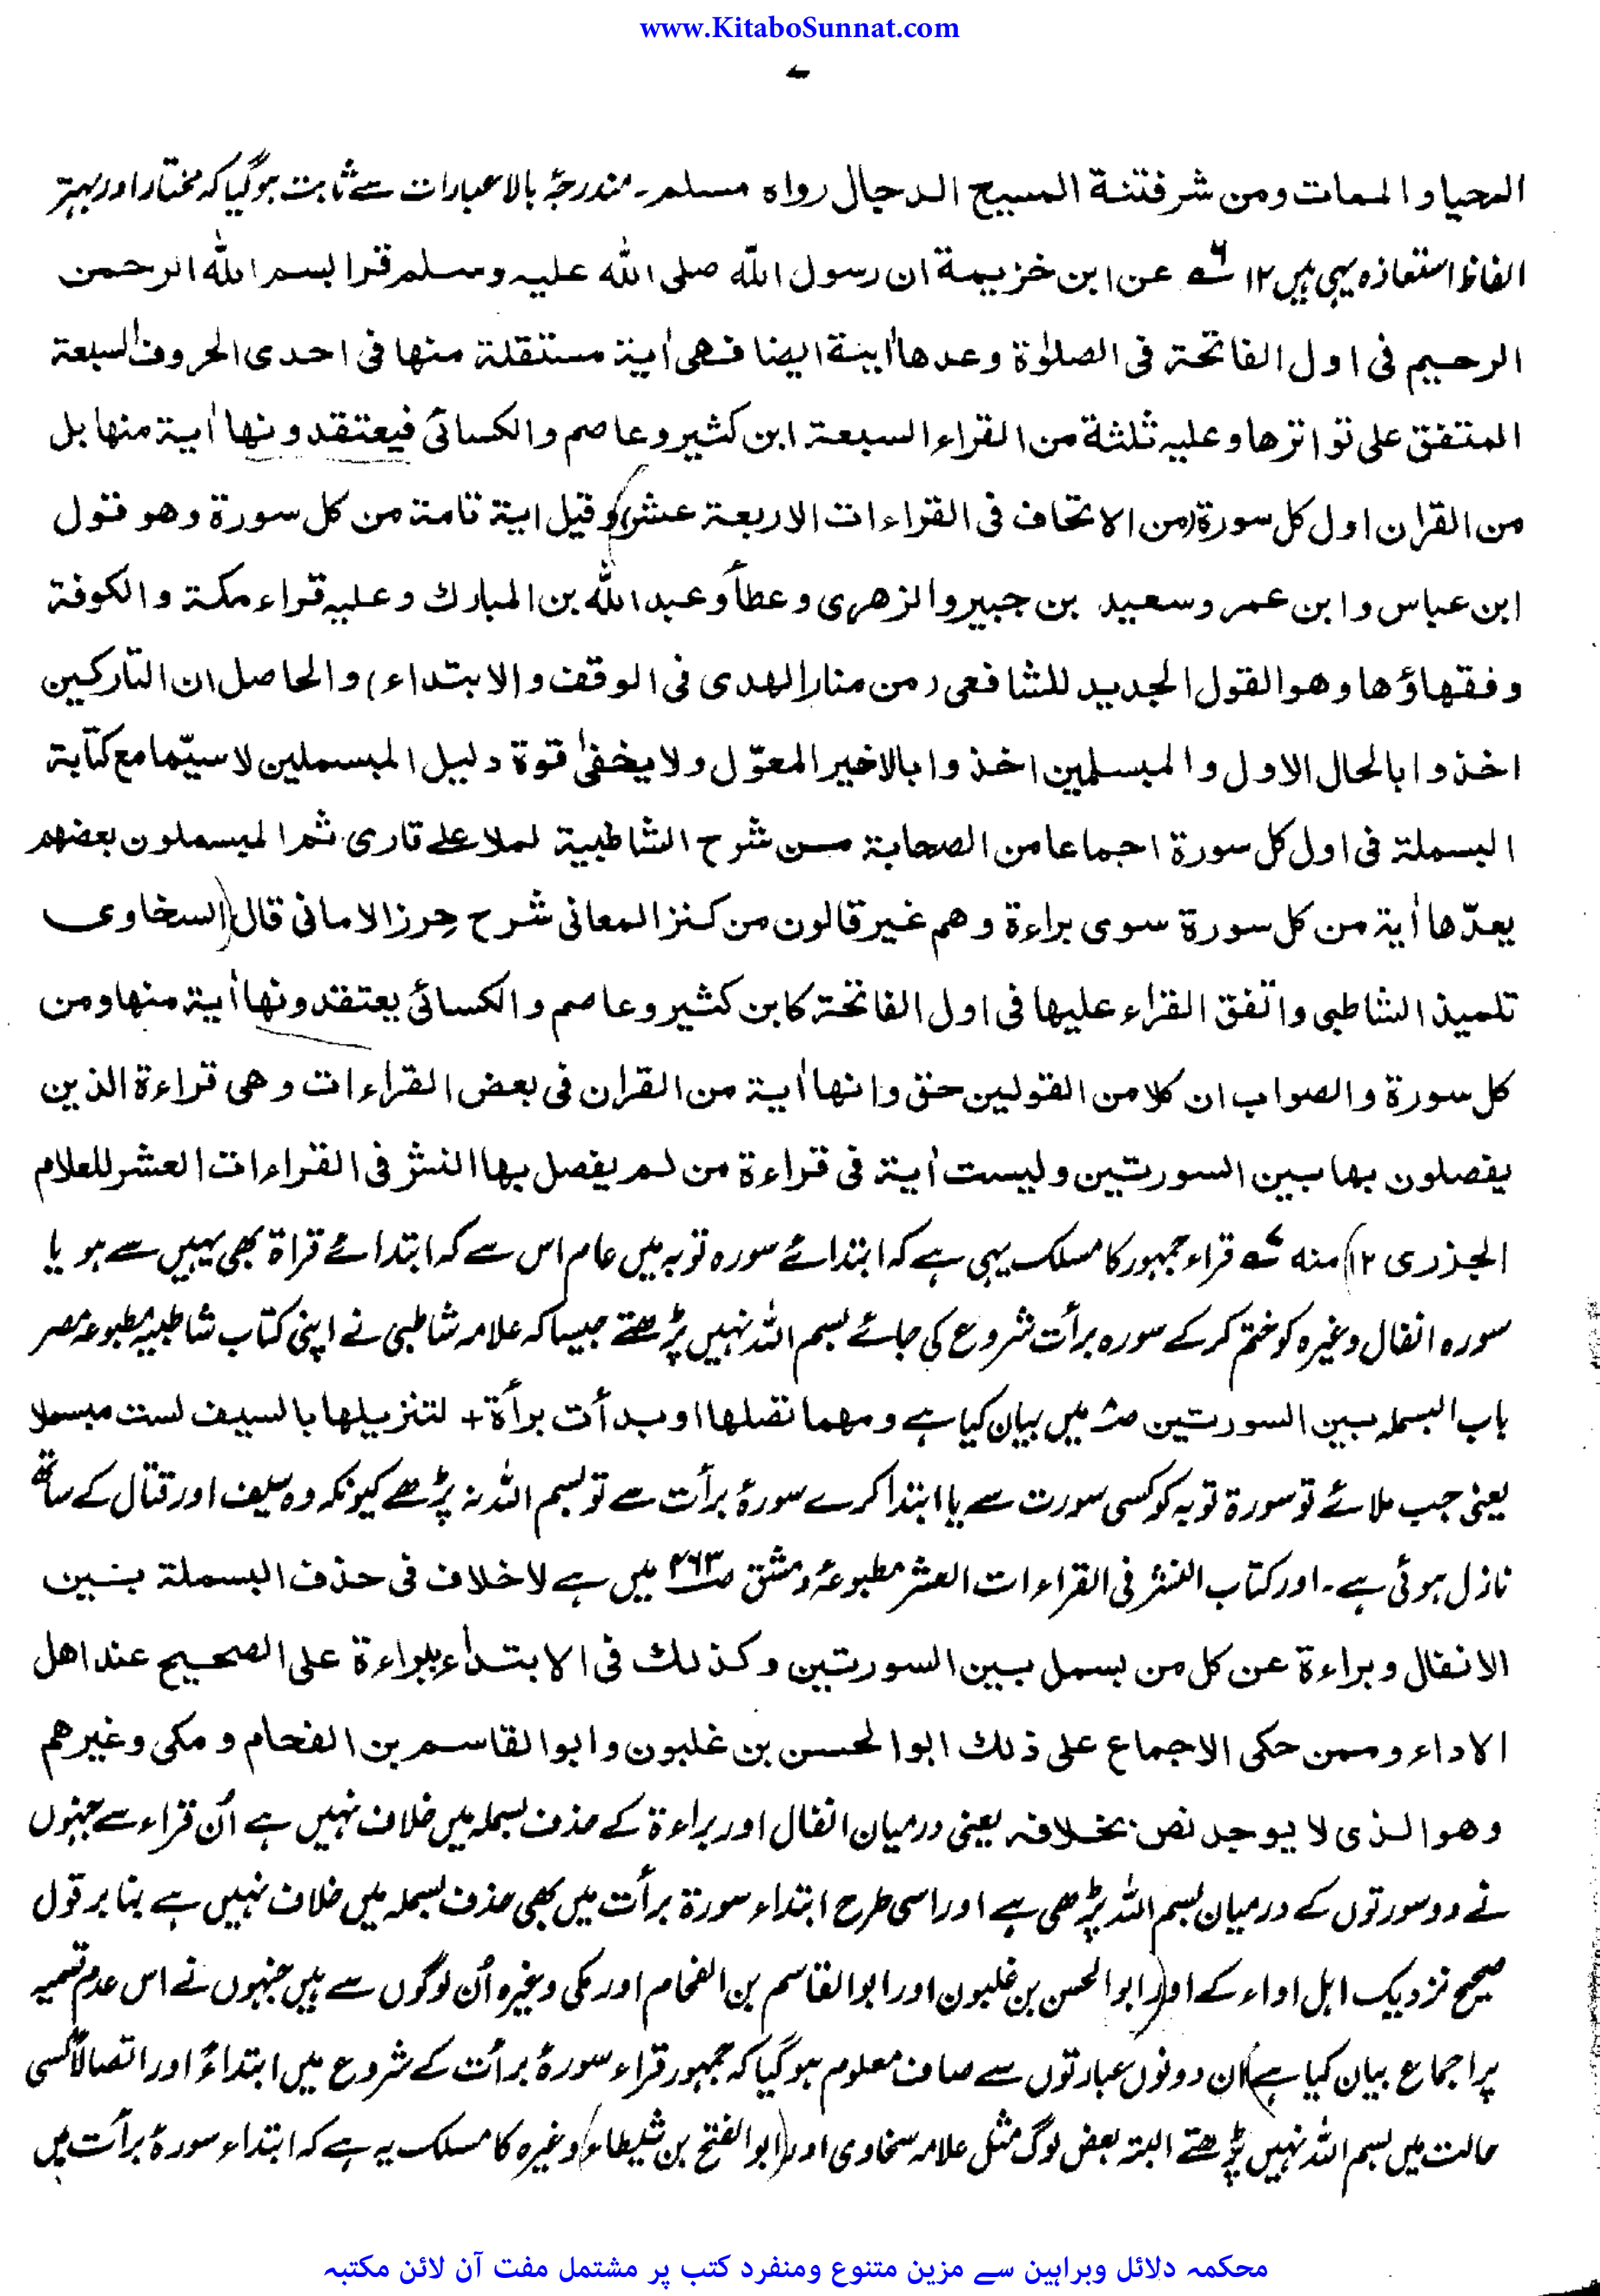 www.KitaboSunnat.com
المحیا والممات ومن شر فتنة المسیح الدجال رواہ مسلم۔ مندرجۂ بالا عبارات سے ثابت ہوگیا کہ مختار اور بہتر
الفاظ استعاذہ یہی ہیں ۱۲ عن ابن خزیمة ان رسول اللّٰہ صلی اللّٰہ علیہ وسلم قرا بسم اللّٰہ الرحمن
الرحیم فی اول الفاتحة فی الصلوٰة وعدھا اٰیة ایضا فھی اٰیة مستقلة منھا فی احدی الحروف السبعة
المتفق علی تواترھا وعلیہ ثلثة من القراء السبعة ابن کثیر وعاصم والکسائی فیعتقدونھا اٰیة منھا بل
من القراٰن اول کل سورة (من الاتحاف فی القراءات الاربعة عشر) وقیل ایة تامة من کل سورة وھو قول
ابن عباس وابن عمر وسعید بن جبیر والزھری وعطاءً وعبد اللّٰہ بن المبارك وعلیہ قراء مکة والکوفة
وفقھاؤھا وھو القول الجدید للشافعی (من منار الھدی فی الوقف والابتداء) والحاصل ان التارکین
اخذوا بالحال الاول والمبسملین اخذوا بالاخیر المعوّل ولا یخفیٰ قوة دلیل المبسملین لا سیّما مع کتابة
البسملة فی اول کل سورة اجماعا من الصحابة من شرح الشاطبیة لملا علی قاری ثم المبسملون بعضھم
یعدّھا اٰیة من کل سورة سوی براءة وھم غیر قالون من کنز المعانی شرح حِرز الامانی قال (السخاوی
تلمیذ الشاطبی واتفق القراء علیھا فی اول الفاتحة کابن کثیر وعاصم والکسائی یعتقدونھا اٰیة منھا ومن
کل سورة والصواب ان کلا من القولین حق وانھا اٰیة من القراٰن فی بعض القراءات وھی قراءة الذین
یفصلون بھا بین السورتین ولیست اٰیة فی قراءة من لم یفصل بھا النشر فی القراءات العشر للعلام
الجذری ۱۲) منہ قراء جمہور کا مسلک یہی ہے کہ ابتدائے سورہ توبہ میں عام اس سے کہ ابتدائے قراۃ بھی یہیں سے ہو یا
سورہ انفال وغیرہ کو ختم کرکے سورہ برأت شروع کی جائے بسم اللہ نہیں پڑھتے جیسا کہ علامہ شاطبی نے اپنی کتاب شاطبیہ مطبوعہ مصر
باب البسملہ بین السورتین میں بیان کیا ہے ومھما تصلھا او بدأت برأة + لتنزیلھا بالسیف لست مبسملا
یعنی جب ملائے تو سورۃ توبہ کو کسی سورت سے یا ابتدا کرے سورۂ برأت سے تو بسم اللہ نہ پڑھے کیونکہ وہ سیف اور قتال کے ساتھ
نازل ہوئی ہے۔ اور کتاب النشر فی القراءات العشر مطبوعۂ دمشق ص۲۶۳ میں ہے لا خلاف فی حذف البسملة بین
الانفال وبراءة عن کل من بسمل بین السورتین وکذلك فی الابتداء ببراءة علی الصحیح عند اھل
الاداء وممن حکی الاجماع علی ذلك ابو الحسن بن غلبون وابو القاسم بن الفحام ومکی وغیرھم
وھو الذی لا یوجد نص بخلافہ یعنی درمیان انفال اور براءۃ کے حذف بسملہ میں خلاف نہیں ہے اُن قراء سے جنہوں
نے دو سورتوں کے درمیان بسم اللہ پڑھی ہے اور اسی طرح ابتداء سورۃ برأت میں بھی حذف بسملہ میں خلاف نہیں ہے بنا بر قول
صحیح نزدیک اہل اداء کے اور (ابو الحسن بن غلبون اور ابو القاسم بن الفحام اور مکی وغیرہ اُن لوگوں سے ہیں جنہوں نے اس عدم تسمیہ
پر اجماع بیان کیا ہے) ان دونوں عبارتوں سے صاف معلوم ہوگیا کہ جمہور قراء سورۂ برأت کے شروع میں ابتداءً اور اتصالاً کسی
حالت میں بسم اللہ نہیں پڑھتے البتہ بعض لوگ مثل علامہ سخاوی اور (ابو الفتح بن شیطاء) وغیرہ کا مسلک یہ ہے کہ ابتداء سورۂ برأت میں
محکمہ دلائل وبراہین سے مزین متنوع ومنفرد کتب پر مشتمل مفت آن لائن مکتبہ